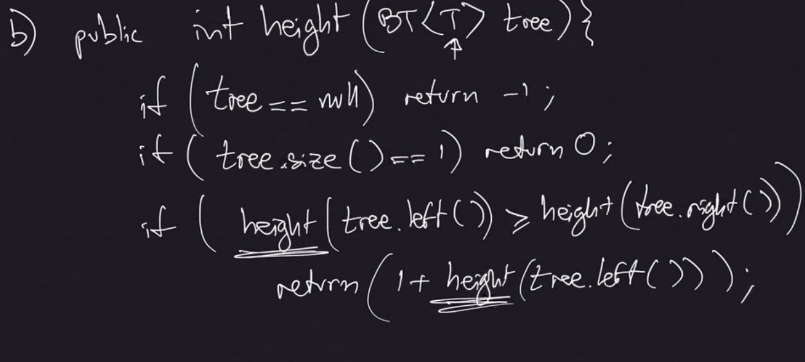 b) public int height (BT<T> tree) {
if (tree == null) return -1;
if ( tree.size () == 1) return 0;
if ( height ( tree.left ()) ≥ height (tree.right ()))
return ( 1 + height (tree.left ()) );